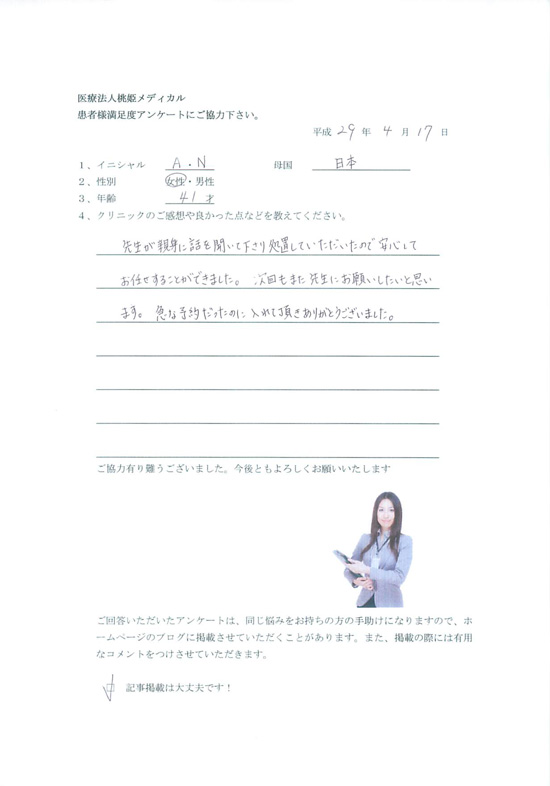 医療法人桃姫メディカル
患者様満足度アンケートにご協力下さい。
平成 29 年 4 月 17 日
1、イニシャル A.N 母国 日本
2、性別 女性・男性
3、年齢 41 才
4、クリニックのご感想や良かった点などを教えてください。
先生が親身に話を聞いて下さり処置していただいたので安心して
お任せすることができました。次回もまた先生にお願いしたいと思い
ます。急な予約だったのに入れて頂きありがとうございました。
ご協力有り難うございました。今後ともよろしくお願いいたします
ご回答いただいたアンケートは、同じ悩みをお持ちの方の手助けになりますので、ホ
ームページのブログに掲載させていただくことがあります。また、掲載の際には有用
なコメントをつけさせていただきます。
記事掲載は大丈夫です！